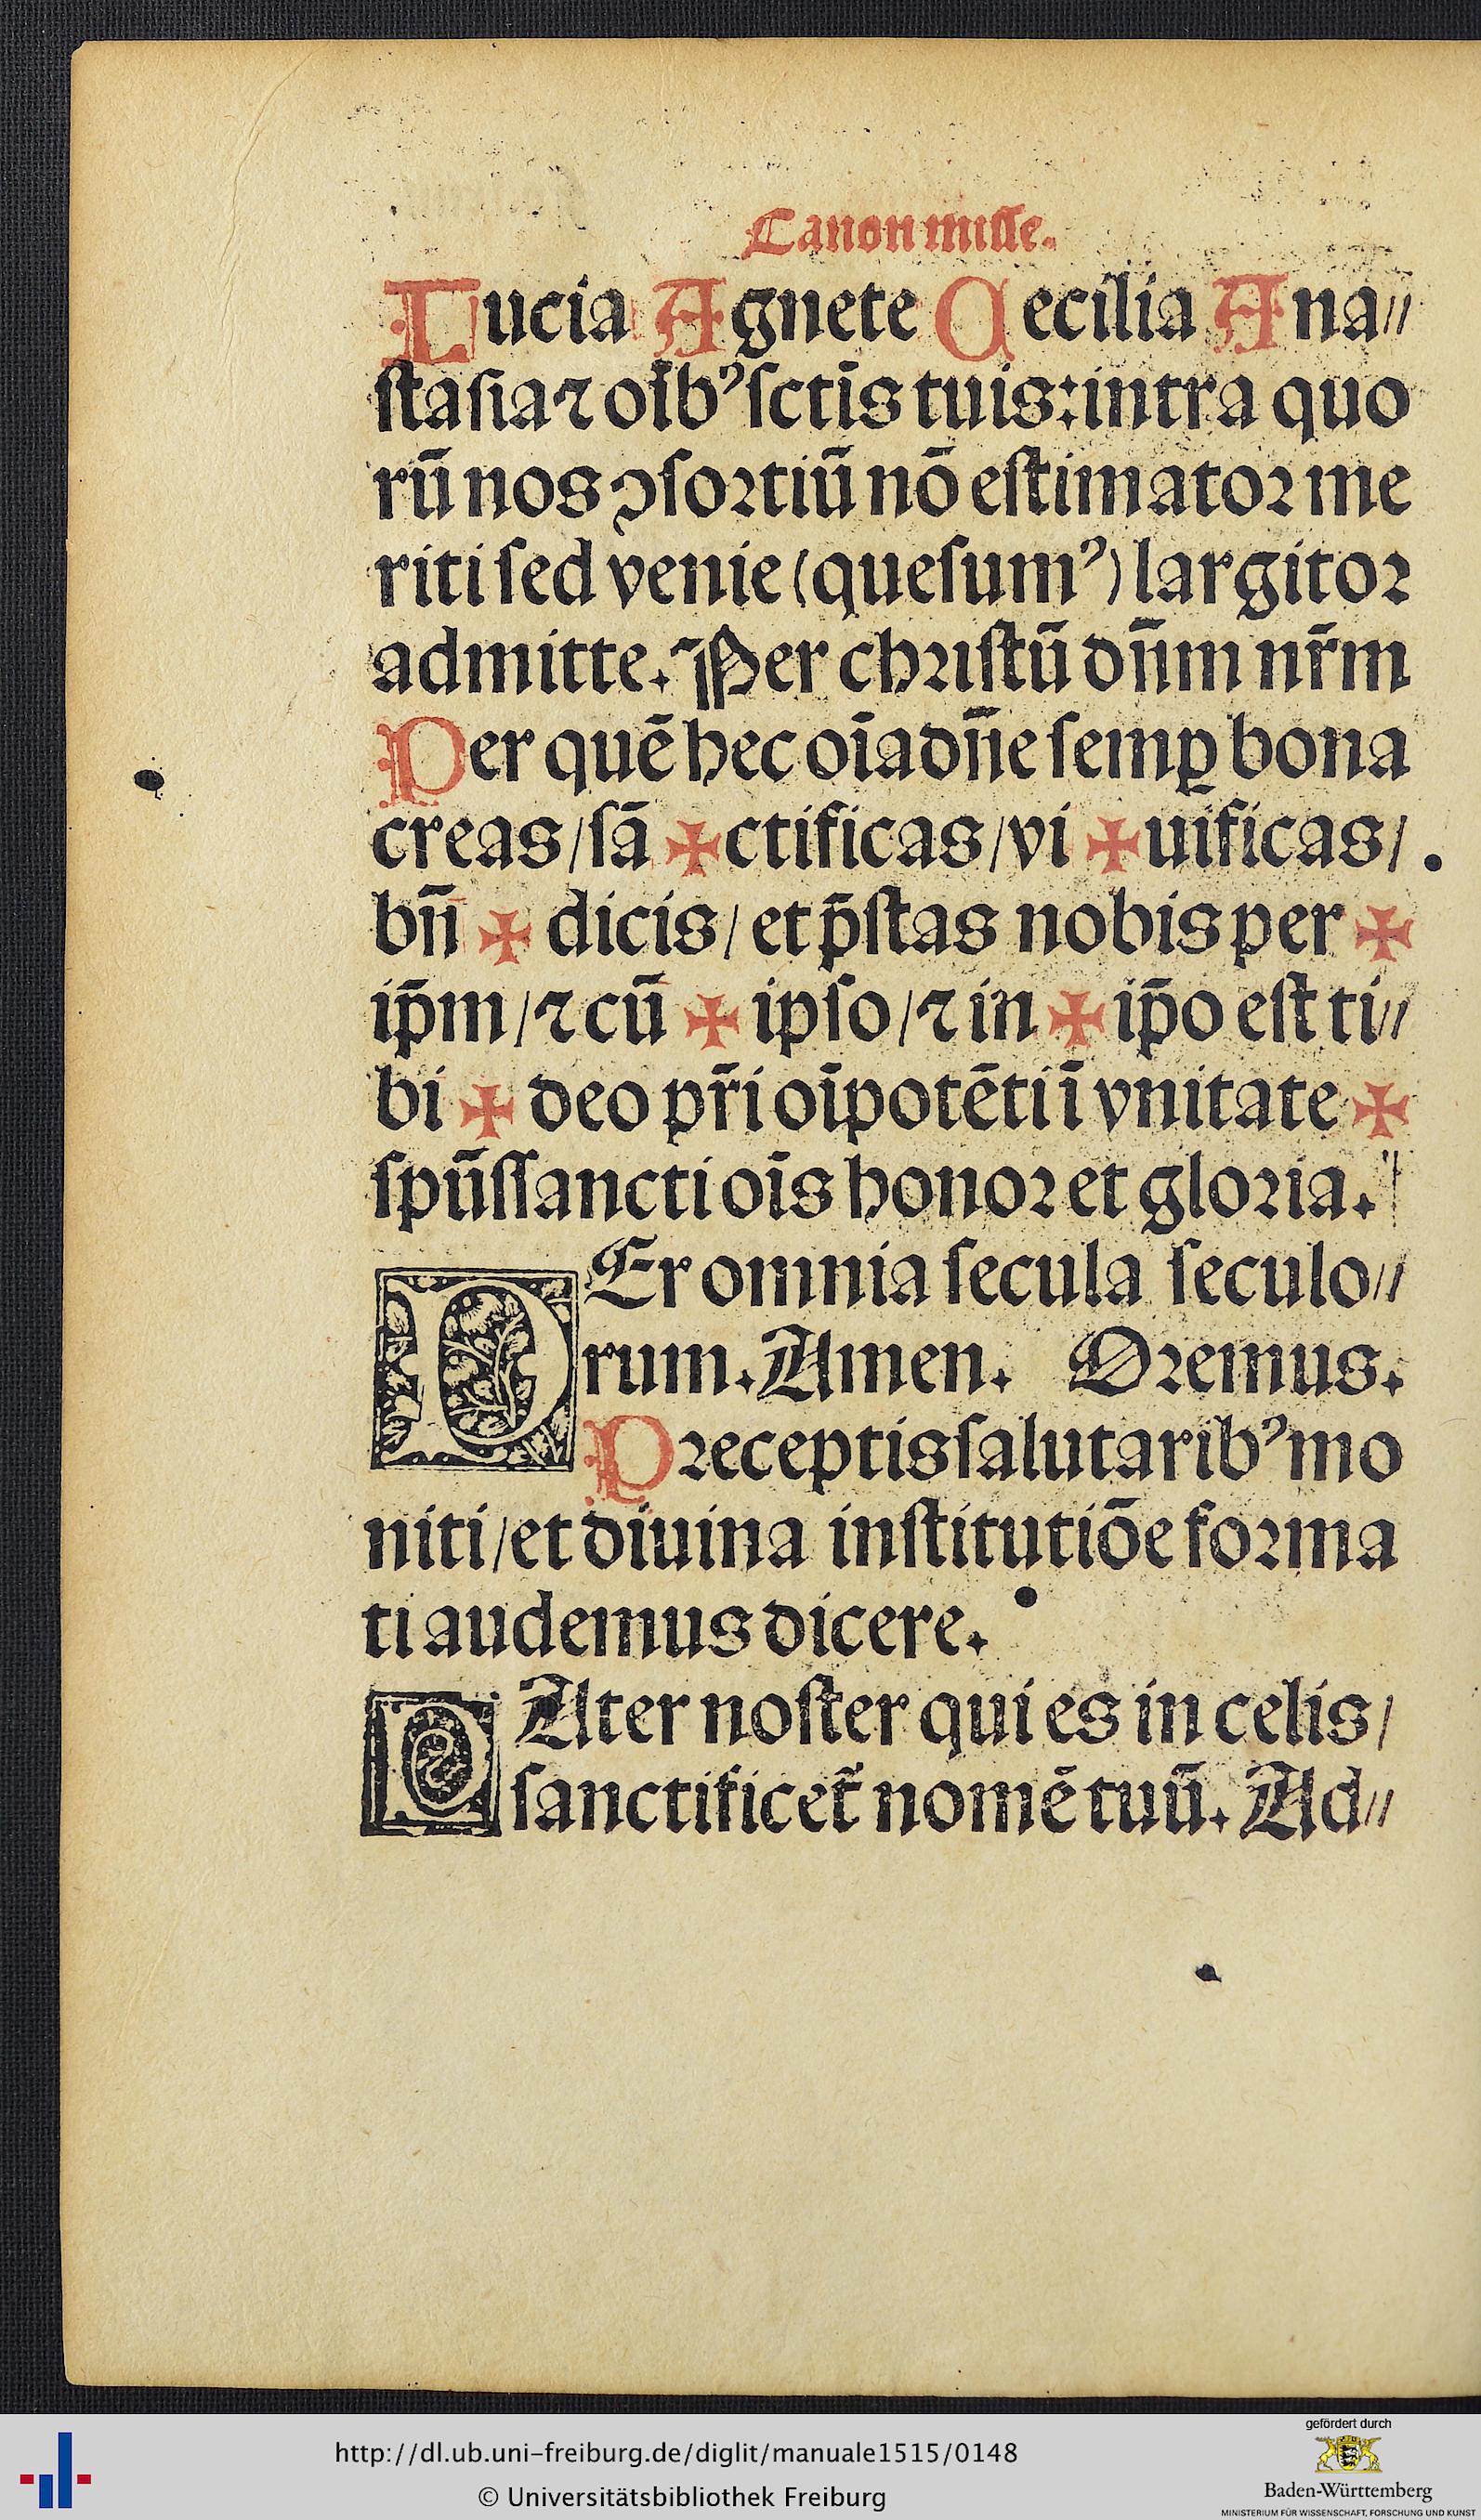 Canon misse.
Lucia Agnete Cecilia Ana⸗
ſtaſia ⁊ oı̄bꝰ ſctı̄s tuis: intra quo
rū nos ↄſoꝛtiū nō eſtimatoꝛ me
riti ſed venie (queſumꝰ) largitoꝛ
admitte. Per chꝛiſtū dn̄m nr̄m
Per quē hec oı̄a dn̄e ſemꝑ bona
creas/ ſā ✠ ctificas/ vi ✠ uificas/
bn̄ ✠ dicis/ et p̄ſtas nobis per ✠
ip̄m/ ⁊ cū ✠ ipſo/ ⁊ in ✠ ip̄o eſt ti⸗
bi ✠ deo pr̄i oı̄potēti ı̄ vnitate ✠
ſpūſſancti oı̄s honoꝛ et gloꝛia.
PEr omnia ſecula ſeculo⸗
rum. Amen. Oꝛemus.
Pꝛeceptis ſalutaribꝰ mo
niti/ et diuina inſtitutiōe foꝛma
ti audemus dicere.
PAter noſter qui es in celis/
ſanctificet᷑ nomē tuū. Ad⸗
http://dl.ub.uni-freiburg.de/diglit/manuale1515/0148
© Universitätsbibliothek Freiburg
gefördert durch
Baden-Württemberg
MINISTERIUM FÜR WISSENSCHAFT, FORSCHUNG UND KUNST